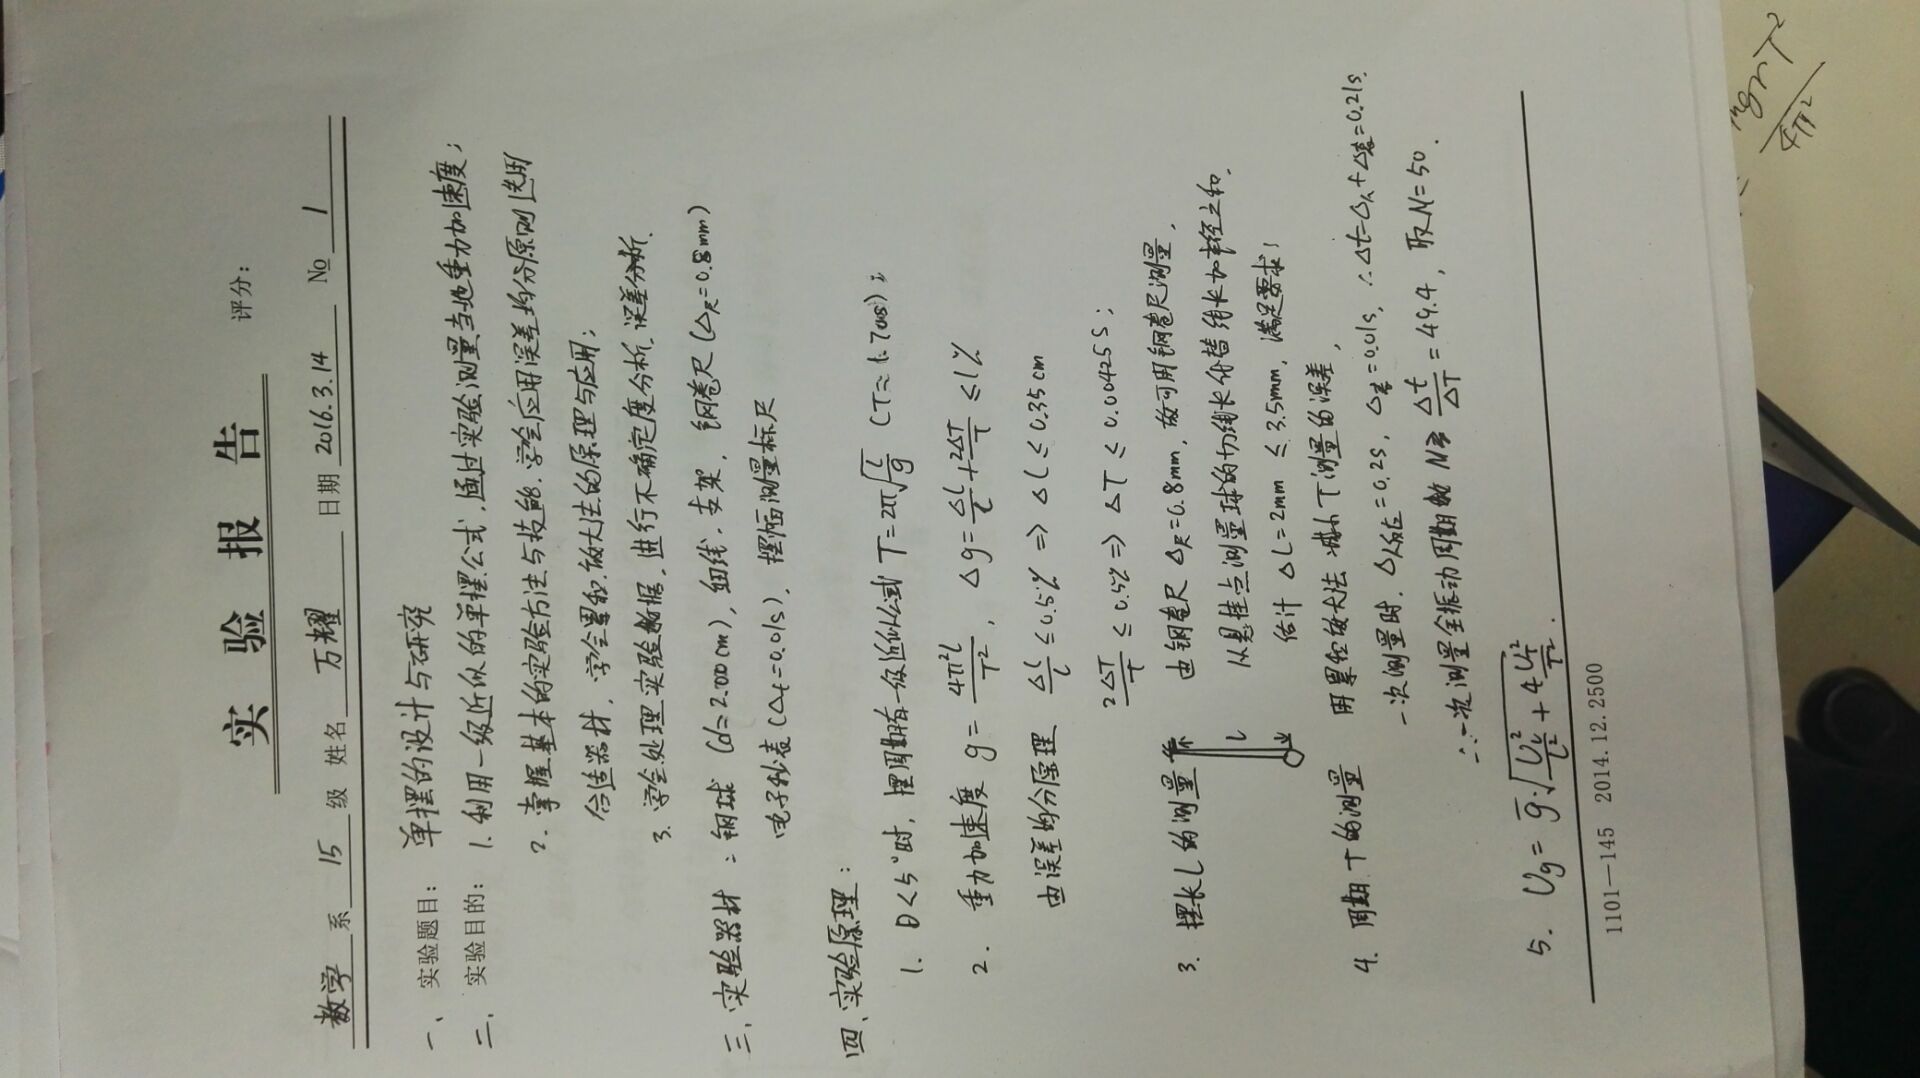 实验报告
评分：
数学 系 15 级 姓名 万耀 日期 2016.3.14 No 1
一、实验题目： 单摆的设计与研究
二、实验目的： 1. 利用一级近似的单摆公式，通过实验测量当地重力加速度；
2. 掌握基本的实验方法与技能，学会应用误差均分原则选用
合适器材，学会累积放大法的原理与应用；
3. 学会处理实验数据，进行不确定度分析，误差分析.
三、实验器材：钢球 (d=2.00cm)，细线，支架，钢卷尺 (Δ尺=0.8mm)
电子秒表 (Δt=0.01s)，摆幅测量标尺
四、实验原理：
1. θ<5°时，摆周期有一级近似公式 T=2π√(L/g) (T≈1.70s)；
2. 重力加速度 g = 4π²L/T²， Δg = ΔL/L + 2ΔT/T ≤ 1%
由误差均分原理 ΔL/L ≤ 0.5% ⇒ ΔL ≤ 0.35cm
2ΔT/T ≤ 0.5% ⇒ ΔT ≤ 0.00425s；
3. 摆长L的测量 由钢卷尺 Δ尺=0.8mm，故可用钢卷尺测量，
L 从悬挂点测量球的切线长代替绳长加半径之和，
估计 ΔL=2mm ≤ 3.5mm，满足要求；
4. 周期T的测量 用累积放大法减小T测量的误差，
一次测量时，Δ人=0.2s，Δ表=0.01s，∴Δt=Δ人+Δ表=0.21s.
∴一次测量全振动周期数 N≥ Δt/ΔT = 49.4，取N=50.
5. Ug = g·√(U_L²/L² + 4U_T²/T²).
1101—145 2014.12.2500
mgrT²
4π²